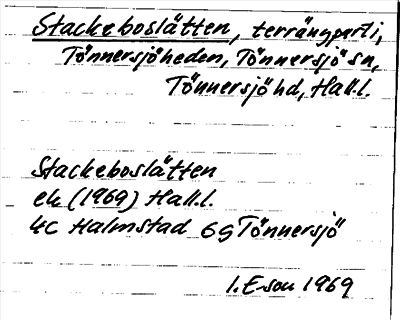 Stackeboslätten, terrängparti,
Tönnersjöheden, Tönnersjö sn,
Tönnersjö hd, Hall.
Stackeboslätten
ek (1969) Hall.
4C Halmstad 6g Tönnersjö
I. E-son 1969